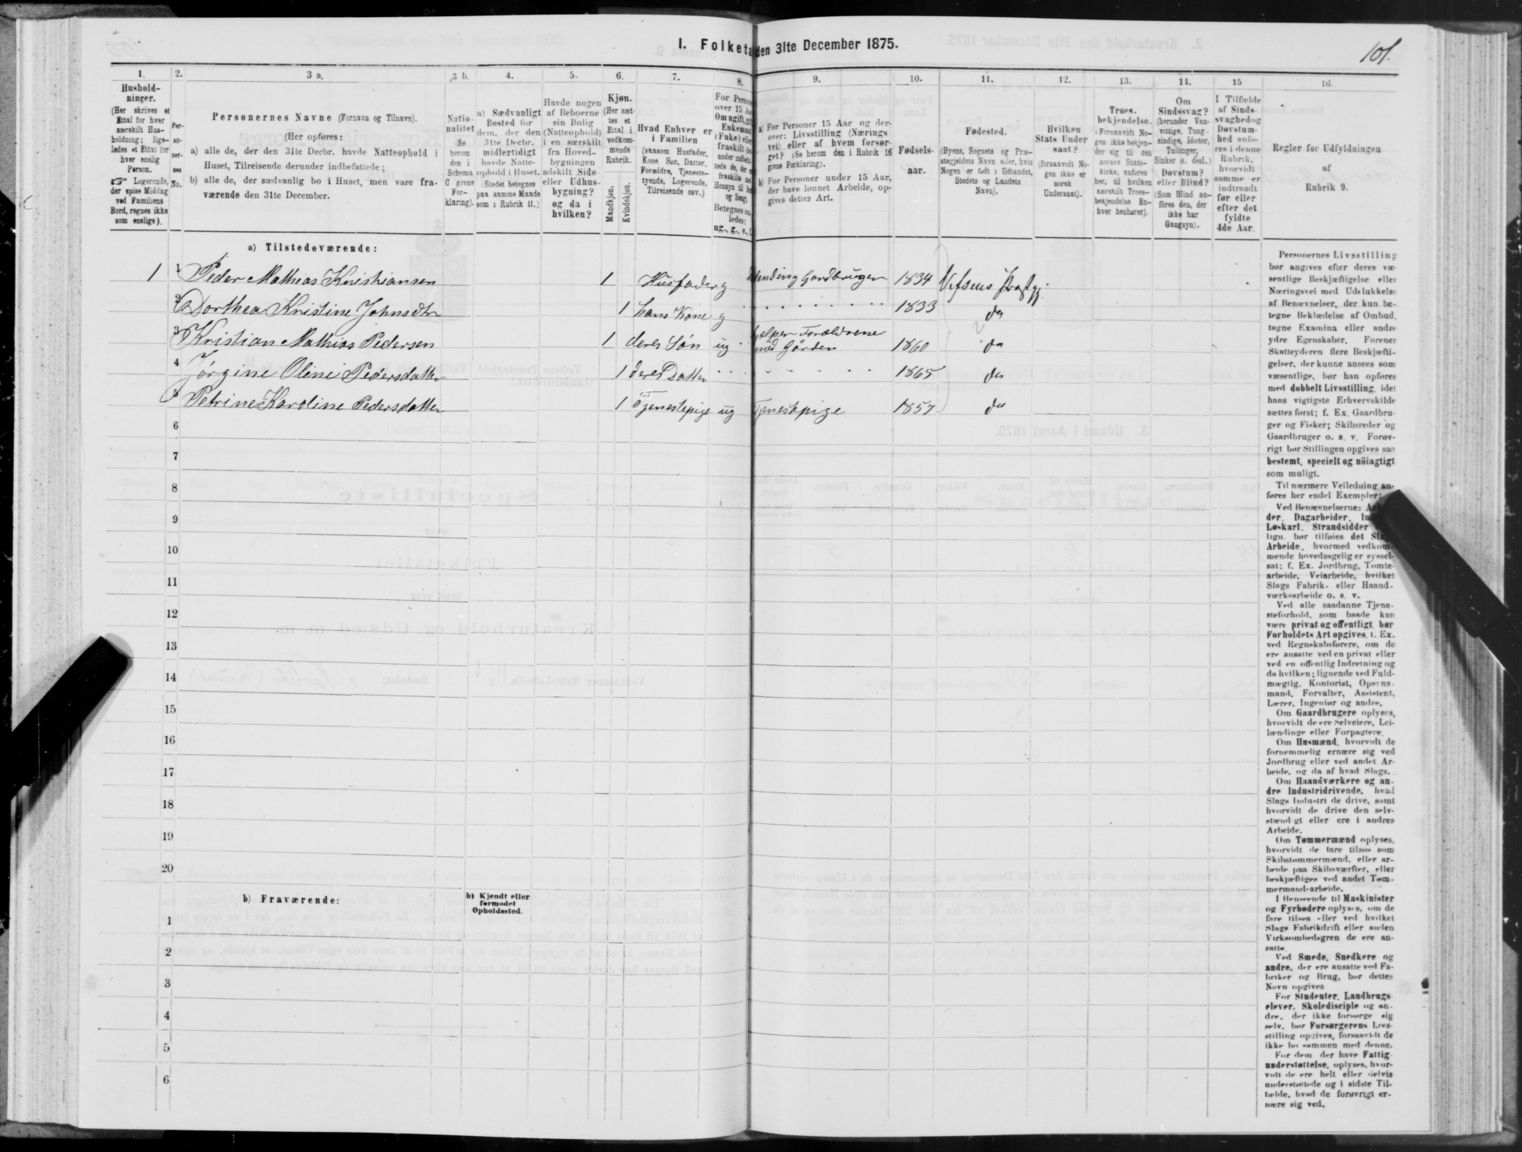 I. Folketa den 31te December 1875.
101.
1.
2.
3 a.
3 b.
4.
5.
6.
7.
8.
9.
10.
11.
12.
13.
14.
15
16.
Hushold-
ninger.
(Her skrives et
Ettal for hver
særskilt Hus-
holdning; lige-
ledes et Ettal for
hver enslig
Person.
☞ Logerende,
der spise Middag
ved Familiens
Bord, regnes ikke
som enslige).
Per-
so-
ner-
nes
No.
Personernes Navne (Fornavn og Tilnavn).
(Her opføres:
a) alle de, der den 31te Decbr. havde Natteophold i
Huset, Tilreisende derunder indbefattede;
b) alle de, der sædvanlig bo i Huset, men vare fra-
værende den 31te December.
Natio-
nalitet
(Se
herom
den i
Schema
C givne
For-
klaring).
a) Sædvanligt
Bosted for
dem, der den
31te Decbr.
midlertidigt
havde Natte-
ophold i Huset.
(Stedet betegnes
paa samme Maade
som i Rubrik 11.)
Havde nogen
af Beboerne
sin Bolig
(Natteophold)
i en særskilt
fra Hoved-
bygningen
adskilt Side-
eller Udhus-
bygning?
og da i
hvilken?
Kjøn.
(Her sæt-
tes et
Ettal i
vedkom-
mende
Rubrik.
Mandkjøn.
Kvindekjøn.
Hvad Enhver er
i Familien
(saasom Husfader,
Kone Søn, Datter,
Forældre, Tjeneste-
tyende, Logerende,
Tilreisende osv.)
For Perso
over 15 Aa
Om ugift, g
Enkema
(Fuke) el
fraskilt
Betegnes
ledes:
ug., g., e., f.
a) For Personer 15 Aar og der-
over: Livsstilling (Nærings
vei) eller af hvem forsør-
get? (Se herom den i Rubrik 16
givne Forklaring).
b) For Personer under 15 Aar,
der have lønnet Arbeide, op-
gives dettes Art.
Fødsels-
aar.
Fødested.
(Byens, Sognets og Præ-
stegjeldets Navn eller, hvis
Nogen er født i Udlandet,
Stedets og Landets
Navn).
Hvilken
Stats Under
saat?
(foraavidt No-
gen ikke er
norsk
Undersaat).
Troes-
bekjendelse.
(Foraavidt No-
gen ikke bekjen-
der sig til den
norske Stats-
kirke, anføres
her, til hvilken
særskilt Troes-
bekjendelse En-
hver henhører).
Om
Sindssvag?
(herunder Van-
vittige, Tung-
sindige, Idioter,
Tullinger,
Sinker o. desl.)
Døvstum?
eller Blind?
(Som Blind an-
føres den, der
ikke har
Gangsyn).
I Tilfælde
af Sinds-
svaghed og
Døvstum-
hed anfø-
res i denne
Rubrik,
hvorvidt
samme er
indtraadt
før eller
efter det
fyldte
4de Aar.
Regler for Udfyldningen
af
Rubrik 9.
a) Tilstedeværende:
1 1 Peder Mathias Kristiansen 1 Husfader g Gaardbruger 1834 Vefsens Prstgj.
2 Dorthea Kristine Johnsdtr 1 hans Kone g 1833 do
3 Kristian Mathias Pedersen 1 deres Søn ug hjælper Forældrene
med Gården 1860 do
4 Jørgine Oline Pedersdatter 1 deres Datter 1865 do
5 Petrine Karoline Pedersdatter 1 Tjenestepige ug Tjenestepige 1857 do
6
7
8
9
10
11
12
13
14
15
16
17
18
19
20
b) Fraværende:
b) Kjendt eller
formodet
Opholdssted.
1
2
3
4
5
6
Personernes Livsstilling
bør angives efter deres væ-
sentlige Beskjæftigelse eller
Næringsvei med Udelukkelse
af Benævnelser, der kun be-
tegne Beklædelse af Ombud,
tagne Examina eller andre
ydre Egenskaber. Forener
Skatteyderen flere Beskjæfti-
gelser, der kunne ansees som
væsentlige, bør han opføres
med dobbelt Livsstilling, idet
hans vigtigste Erhvervskilde
sættes først; f. Ex. Gaardbru-
ger og Fisker; Skibsreder og
Gaardbruger o. s. v. Forøv-
rigt bør Stillingen opgives saa
bestemt, specielt og nöiagtigt
som muligt.
Til nærmere Veiledning an-
føres her endel Exempler:
Ved Benævnelserne:
der, Dagarbeider,
Løskarl, Strandsidder
lign. bør tilføies det Slags
Arbeide, hvormed vedkom-
mende hovedsagelig er syssel-
sat; f. Ex. Jordbrug, Tomte-
arbeide, Veiarbeide, hvilket
Slags Fabrik- eller Haand-
værksarbeide o. s. v.
Ved alle saadanne Tjene-
steforhold, som baade kan
være privat og offentligt, bør
Forholdets Art opgives, f. Ex.
ved Regnskabsførere, om de
ere ansatte ved en privat eller
ved en offentlig Indretning og
da hvilken; lignende ved Fuld-
mægtig, Kontorist, Opsyns-
mand, Forvalter, Assistent,
Lærer, Ingeniør og andre.
Om Gaardbrugere oplyses,
hvorvidt de ere Selveiere, Lei-
lændinge eller Forpagtere.
Om Husmænd, hvorvidt de
fornemmelig ernære sig ved
Jordbrug eller ved andet Ar-
beide, og da af hvad Slags.
Om Haandværkere og an-
dre Industridrivende, hvad
Slags Industri de drive, samt
hvorvidt de drive den selv-
stændigt eller ere i andres
Arbeide.
Om Tømmermænd oplyses,
hvorvidt de fare tilsøs som
Skibstømmermænd, eller ar-
beide paa Skibsværfter, eller
beskjæftiges ved andet Tøm-
mermandsarbeide.
I Henseende til Maskinister
og Fyrbødere oplyses, om de
fare tilsøs eller ved hvilket
Slags Fabrikdrift eller anden
Virksomhedsgren de ere an-
satte.
Ved Smede, Snedkere og
andre, der ere ansatte ved Fa-
briker og Brug, bør dettes
Navn opgives.
For Studenter, Landbrugs-
elever, Skoledisciple og an-
dre, der ikke forsørge sig
selv, bør Forsørgerens Livs-
stilling opgives, forsaavidt de
ikke bo sammen med denne.
For dem, der have Fattig-
understøttelse, oplyses, hvor-
vidt de ere helt eller delvis
understøttede og i sidste Til-
fælde, hvad de forøvrigt er-
nære sig ved.